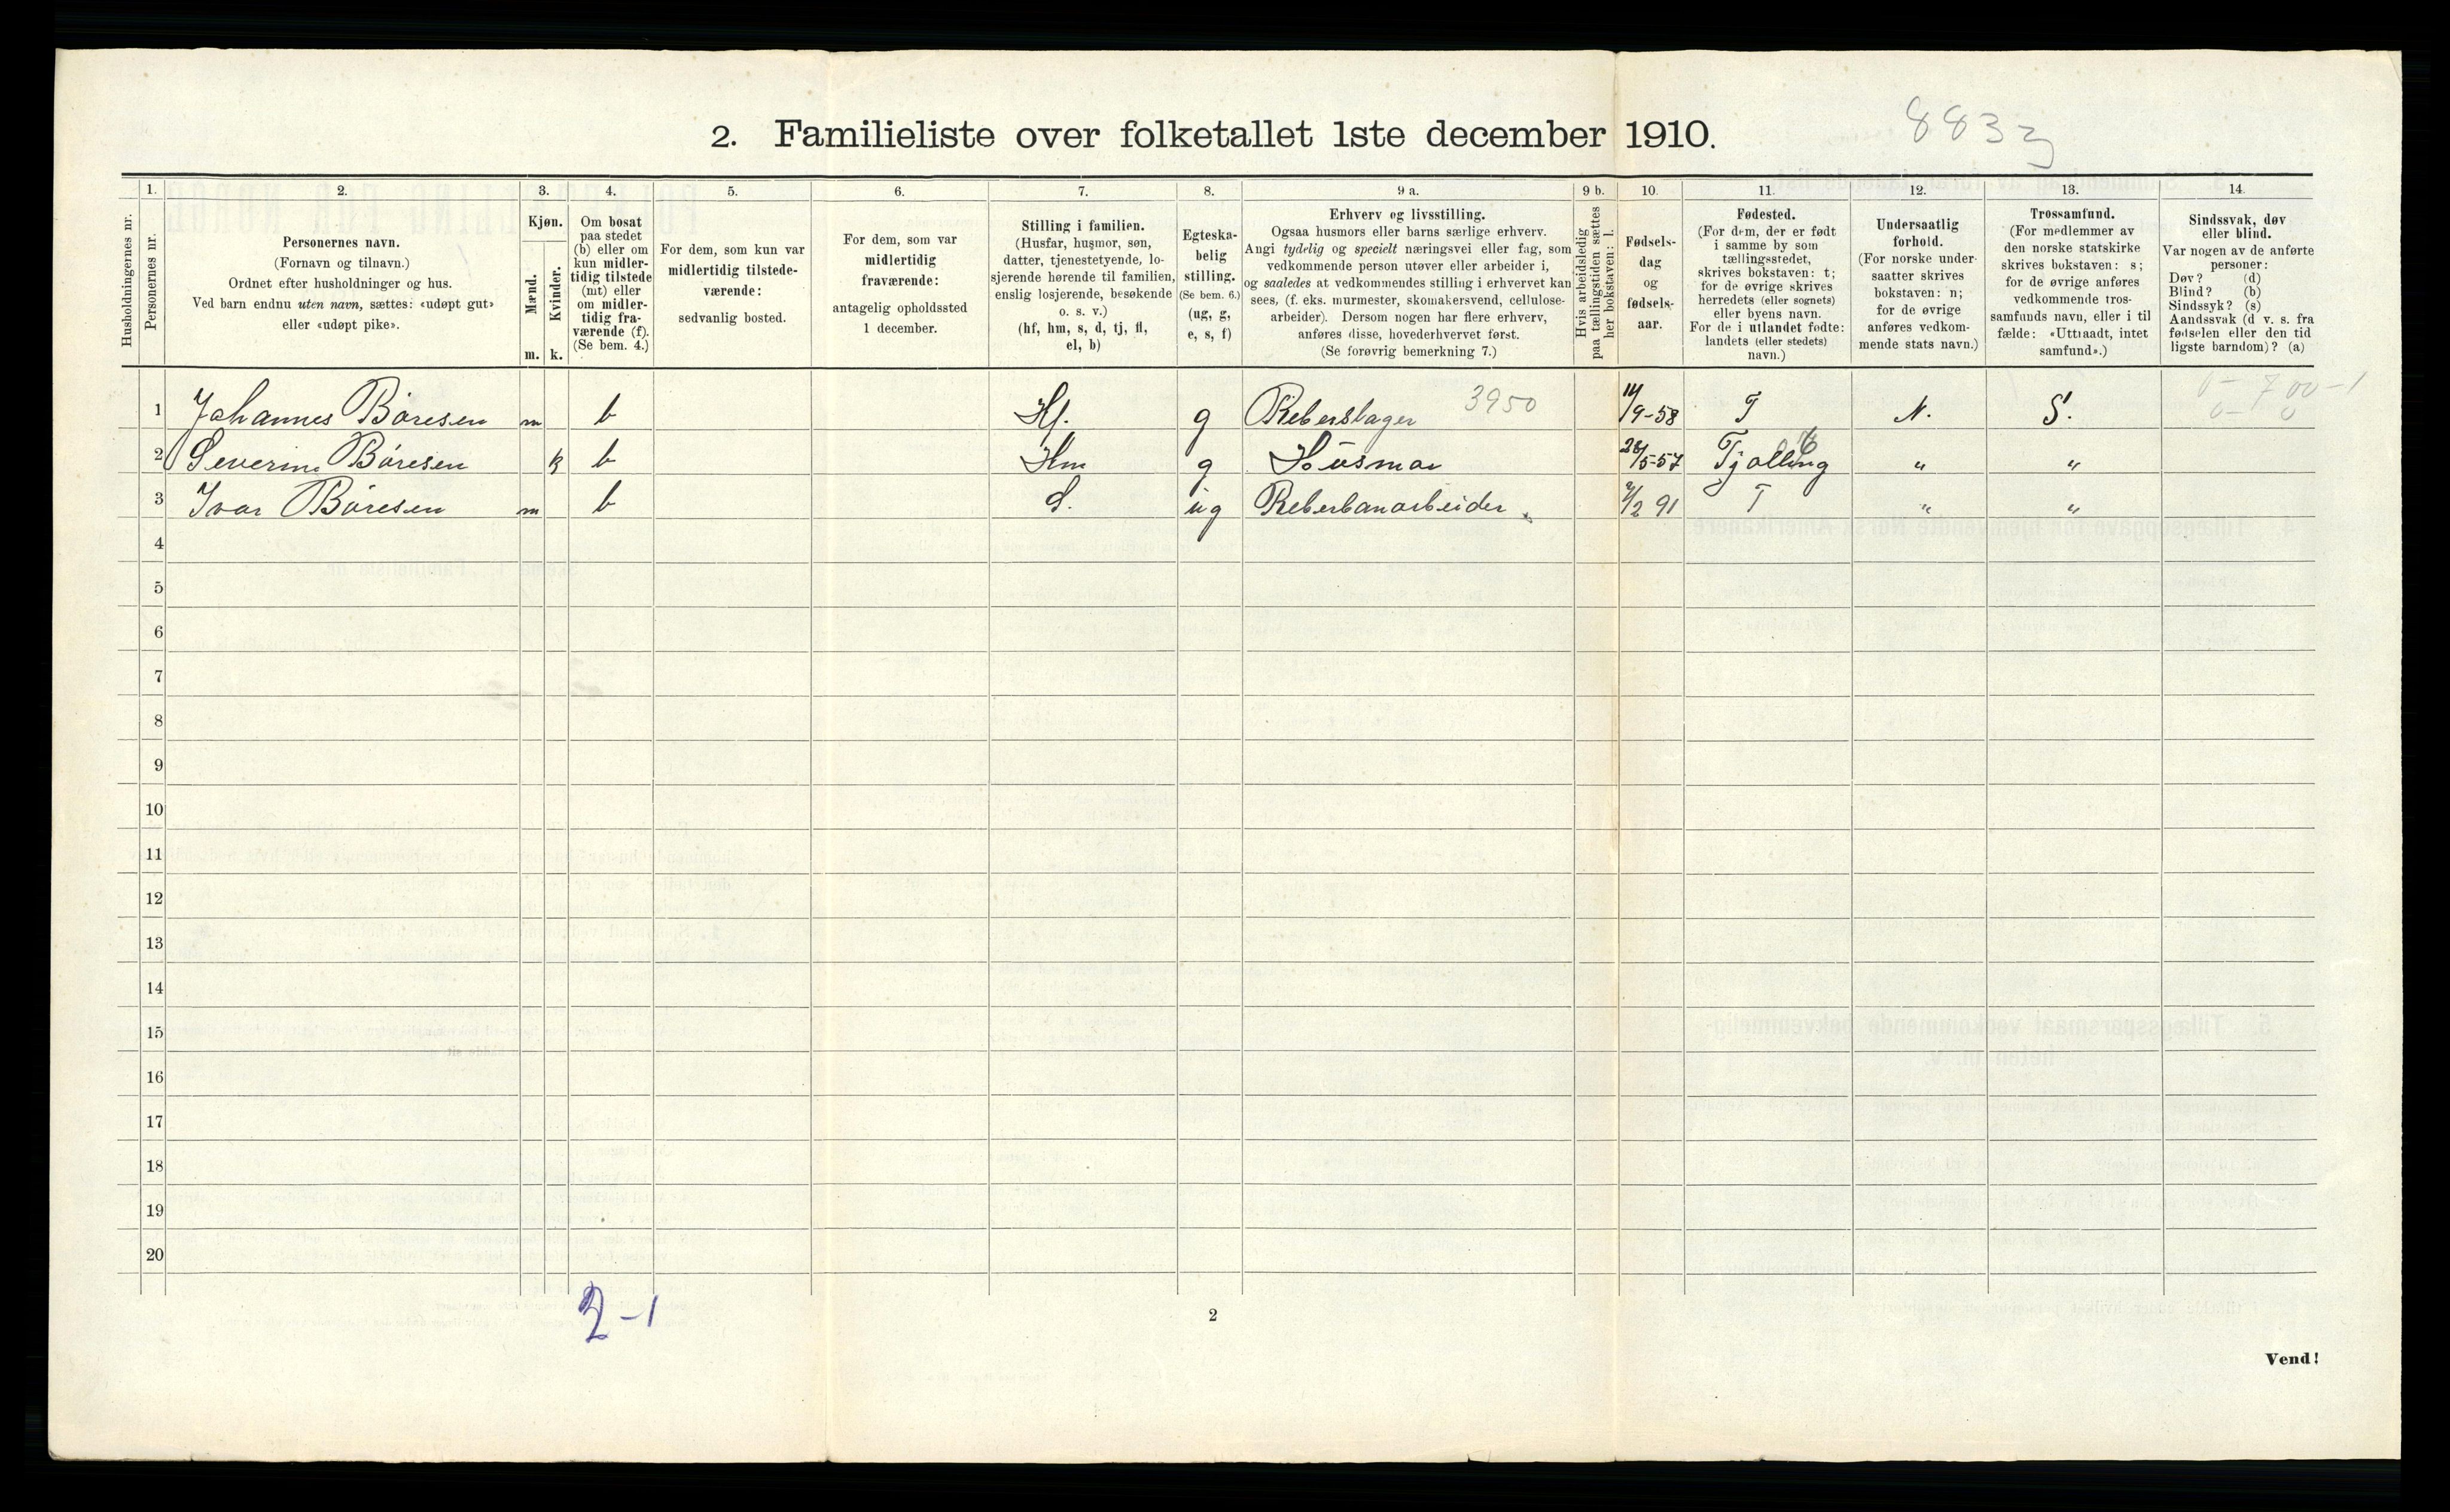 8833
2. Familieliste over folketallet 1ste december 1910.
Husholdningernes nr.
1. Personernes nr.
2. Personernes navn.
(Fornavn og tilnavn.)
Ordnet efter husholdninger og hus.
Ved barn endnu uten navn, sættes: «udøpt gut»
eller «udøpt pike».
3. Kjøn.
Mænd. m.
Kvinder. k.
4. Om bosat
paa stedet
(b) eller om
kun midler-
tidig tilstede
(mt) eller
om midler-
tidig fra-
værende (f).
(Se bem. 4.)
5. For dem, som kun var
midlertidig tilstede-
værende:
sedvanlig bosted.
6. For dem, som var
midlertidig
fraværende:
antagelig opholdssted
1 december.
7. Stilling i familien.
(Husfar, husmor, søn,
datter, tjenestetyende, lo-
sjerende hørende til familien,
enslig losjerende, besøkende
o. s. v.)
(hf, hm, s, d, tj, fl,
el, b)
8. Egteska-
belig
stilling.
(Se bem. 6.)
(ug, g,
e, s, f)
9 a. Erhverv og livsstilling.
Ogsaa husmors eller barns særlige erhverv.
Angi tydelig og specielt næringsvei eller fag, som
vedkommende person utøver eller arbeider i,
og saaledes at vedkommendes stilling i erhvervet kan
sees, (f. eks. murmester, skomakersvend, cellulose-
arbeider). Dersom nogen har flere erhverv,
anføres disse, hovederhvervet først.
(Se forøvrig bemerkning 7.)
9 b. Hvis arbeidsledig
paa tællingstiden sættes
her bokstaven: l.
10. Fødsels-
dag
og
fødsels-
aar.
11. Fødested.
(For dem, der er født
i samme by som
tællingsstedet,
skrives bokstaven: t;
for de øvrige skrives
herredets (eller sognets)
eller byens navn.
For de i utlandet fødte:
landets (eller stedets)
navn.)
12. Undersaatlig
forhold.
(For norske under-
saatter skrives
bokstaven: n;
for de øvrige
anføres vedkom-
mende stats navn.)
13. Trossamfund.
(For medlemmer av
den norske statskirke
skrives bokstaven: s;
for de øvrige anføres
vedkommende tros-
samfunds navn, eller i til
fælde: «Uttraadt, intet
samfund».)
14. Sindssvak, døv
eller blind.
Var nogen av de anførte
personer:
Døv? (d)
Blind? (b)
Sindssyk? (s)
Aandssvak (d v. s. fra
fødselen eller den tid
ligste barndom)? (a)
1 Johannes Børesen m b Hf. g Reberslager 3950 14/9-58 T N. S.
2 Severine Børesen k b Hm g Husmor 28/5-57 Tjølling " "
3 Ivar Børesen m b S. ug Reberbanarbeider. 2/2 91 T " "
4
5
6
7
8
9
10
11
12
13
14
15
16
17
18
19
20
2-1
2
Vend!